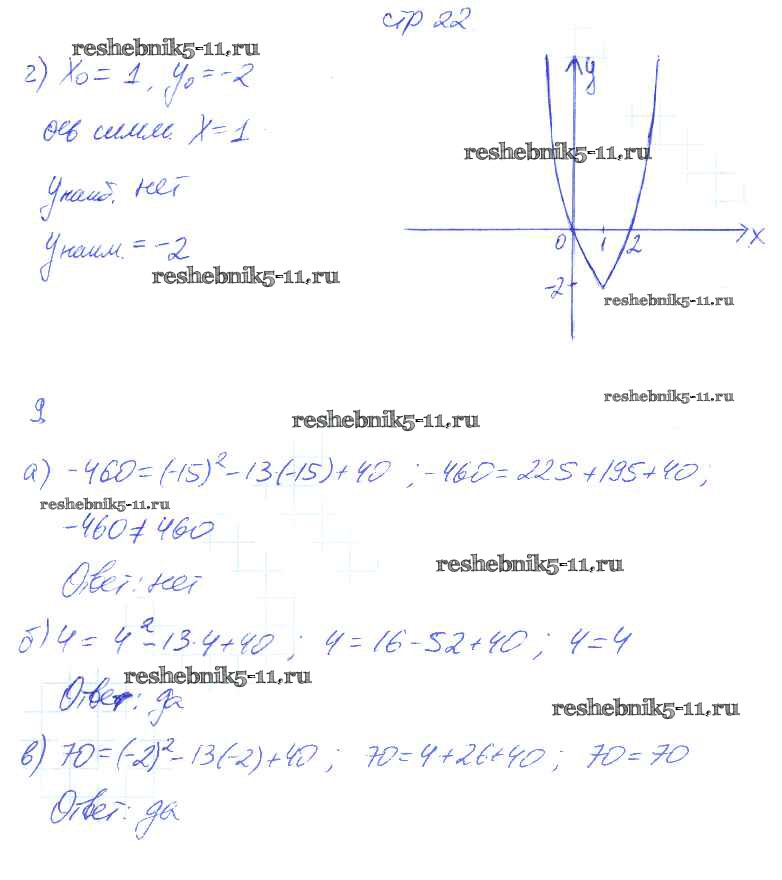 стр 22
reshebnik5-11.ru
г) x₀ = 1, y₀ = -2
y
ось симм. x = 1
reshebnik5-11.ru
yнаиб. нет
yнаим. = -2
0 1 2 x
reshebnik5-11.ru
-2
reshebnik5-11.ru
reshebnik5-11.ru
9
reshebnik5-11.ru
а) -460 = (-15)² - 13·(-15) + 40 ; -460 = 225 + 195 + 40 ;
reshebnik5-11.ru
-460 ≠ 460
reshebnik5-11.ru
Ответ: нет
б) 4 = 4² - 13·4 + 40 ; 4 = 16 - 52 + 40 ; 4 = 4
reshebnik5-11.ru
Ответ: да
reshebnik5-11.ru
в) 70 = (-2)² - 13(-2) + 40 ; 70 = 4 + 26 + 40 ; 70 = 70
Ответ: да